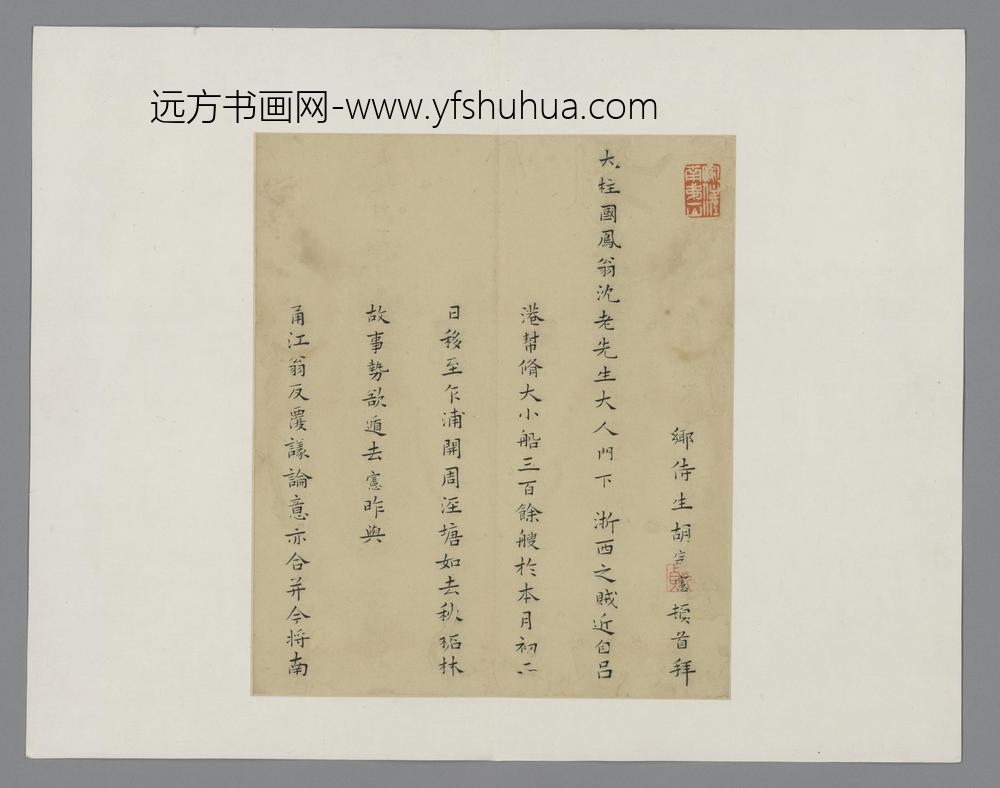 远方书画网-www.yfshuhua.com
鄉侍生胡宗憲頓首拜
大柱國鳳翁沈老先生大人門下 浙西之賊近自吕
港幫脩大小船三百餘艘於本月初二
日移至乍浦開周涇塘如去秋招林
故事勢欲遁去憲昨與
甬江翁反覆議論意亦合并今将南